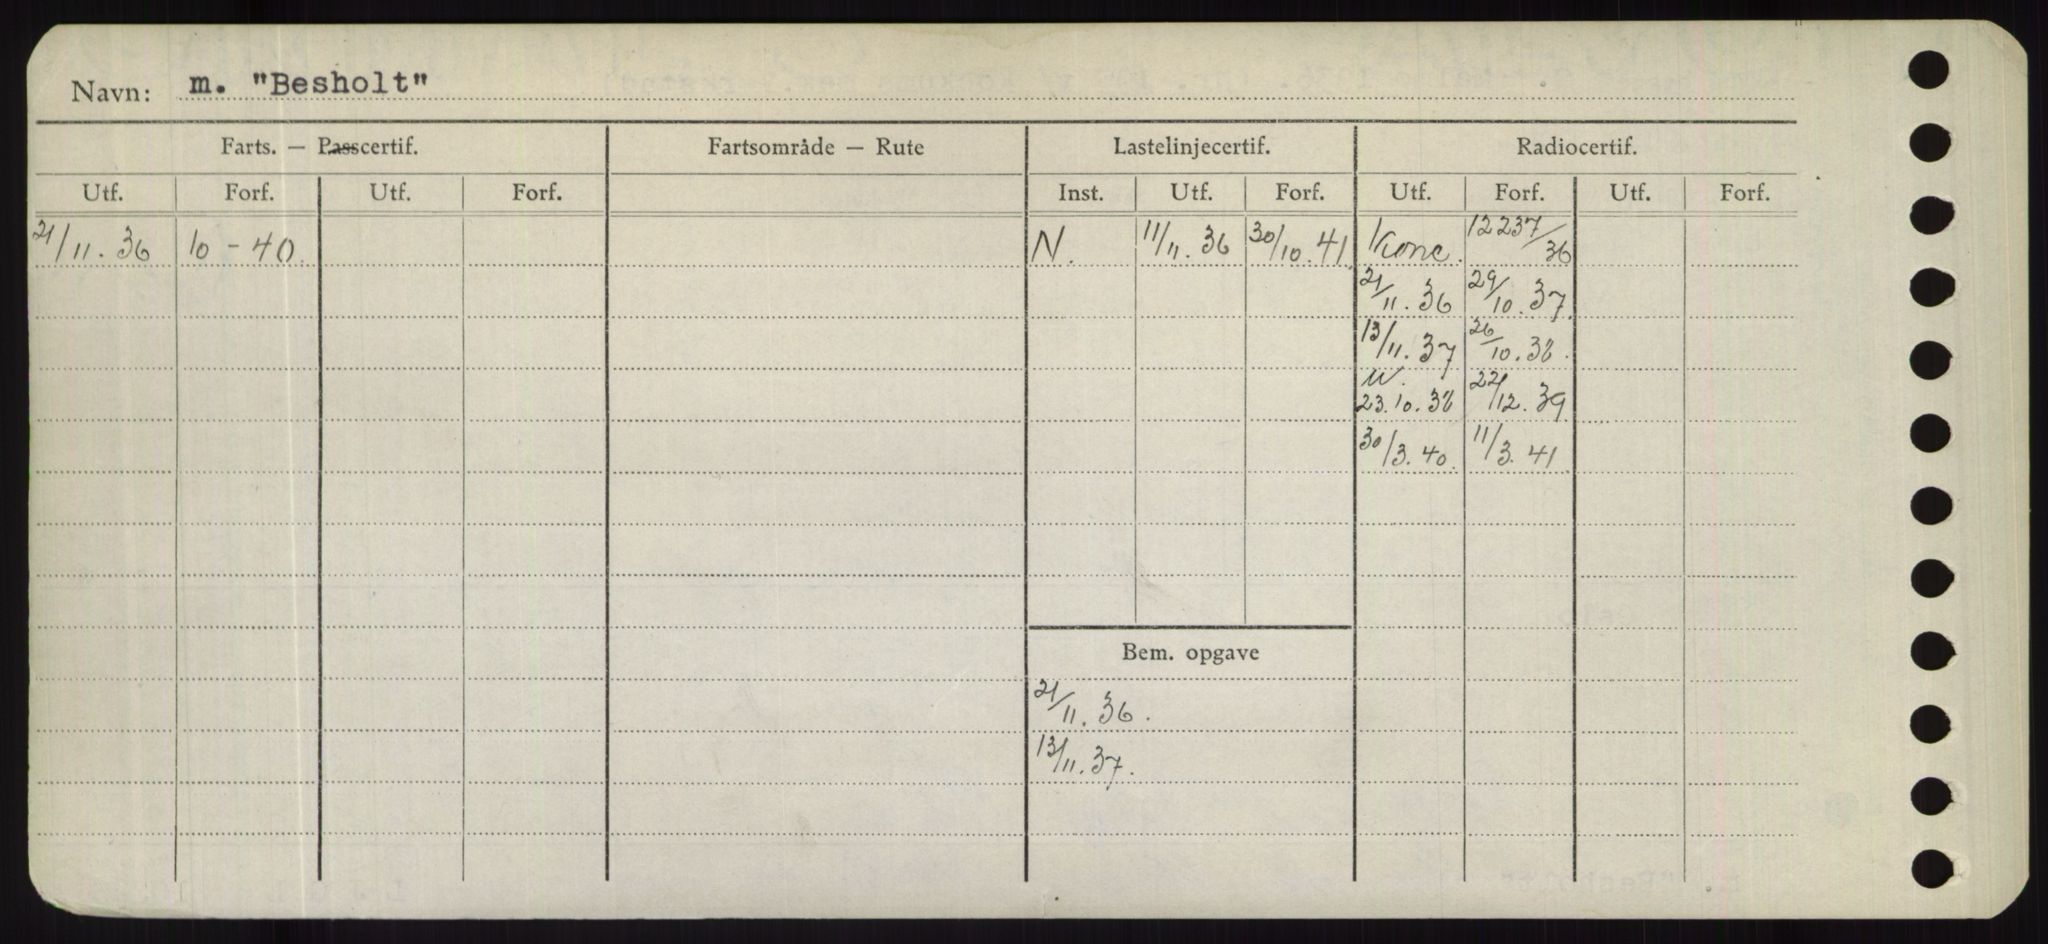 Navn: m. "Besholt"
Farts. — Passcertif. Fartsområde — Rute Lastelinjecertif. Radiocertif.
Utf. Forf. Utf. Forf. Inst. Utf. Forf. Utf. Forf. Utf. Forf.
21/11. 36 10 - 40 N. 11/11. 36 30/10. 41 Konc. 12237/36
21/11. 36 29/10. 37.
13/11. 37 26/10. 38.
23.10.38 22/12. 39
30/3. 40. 11/3. 41
Bem. opgave
21/11. 36.
13/11. 37.